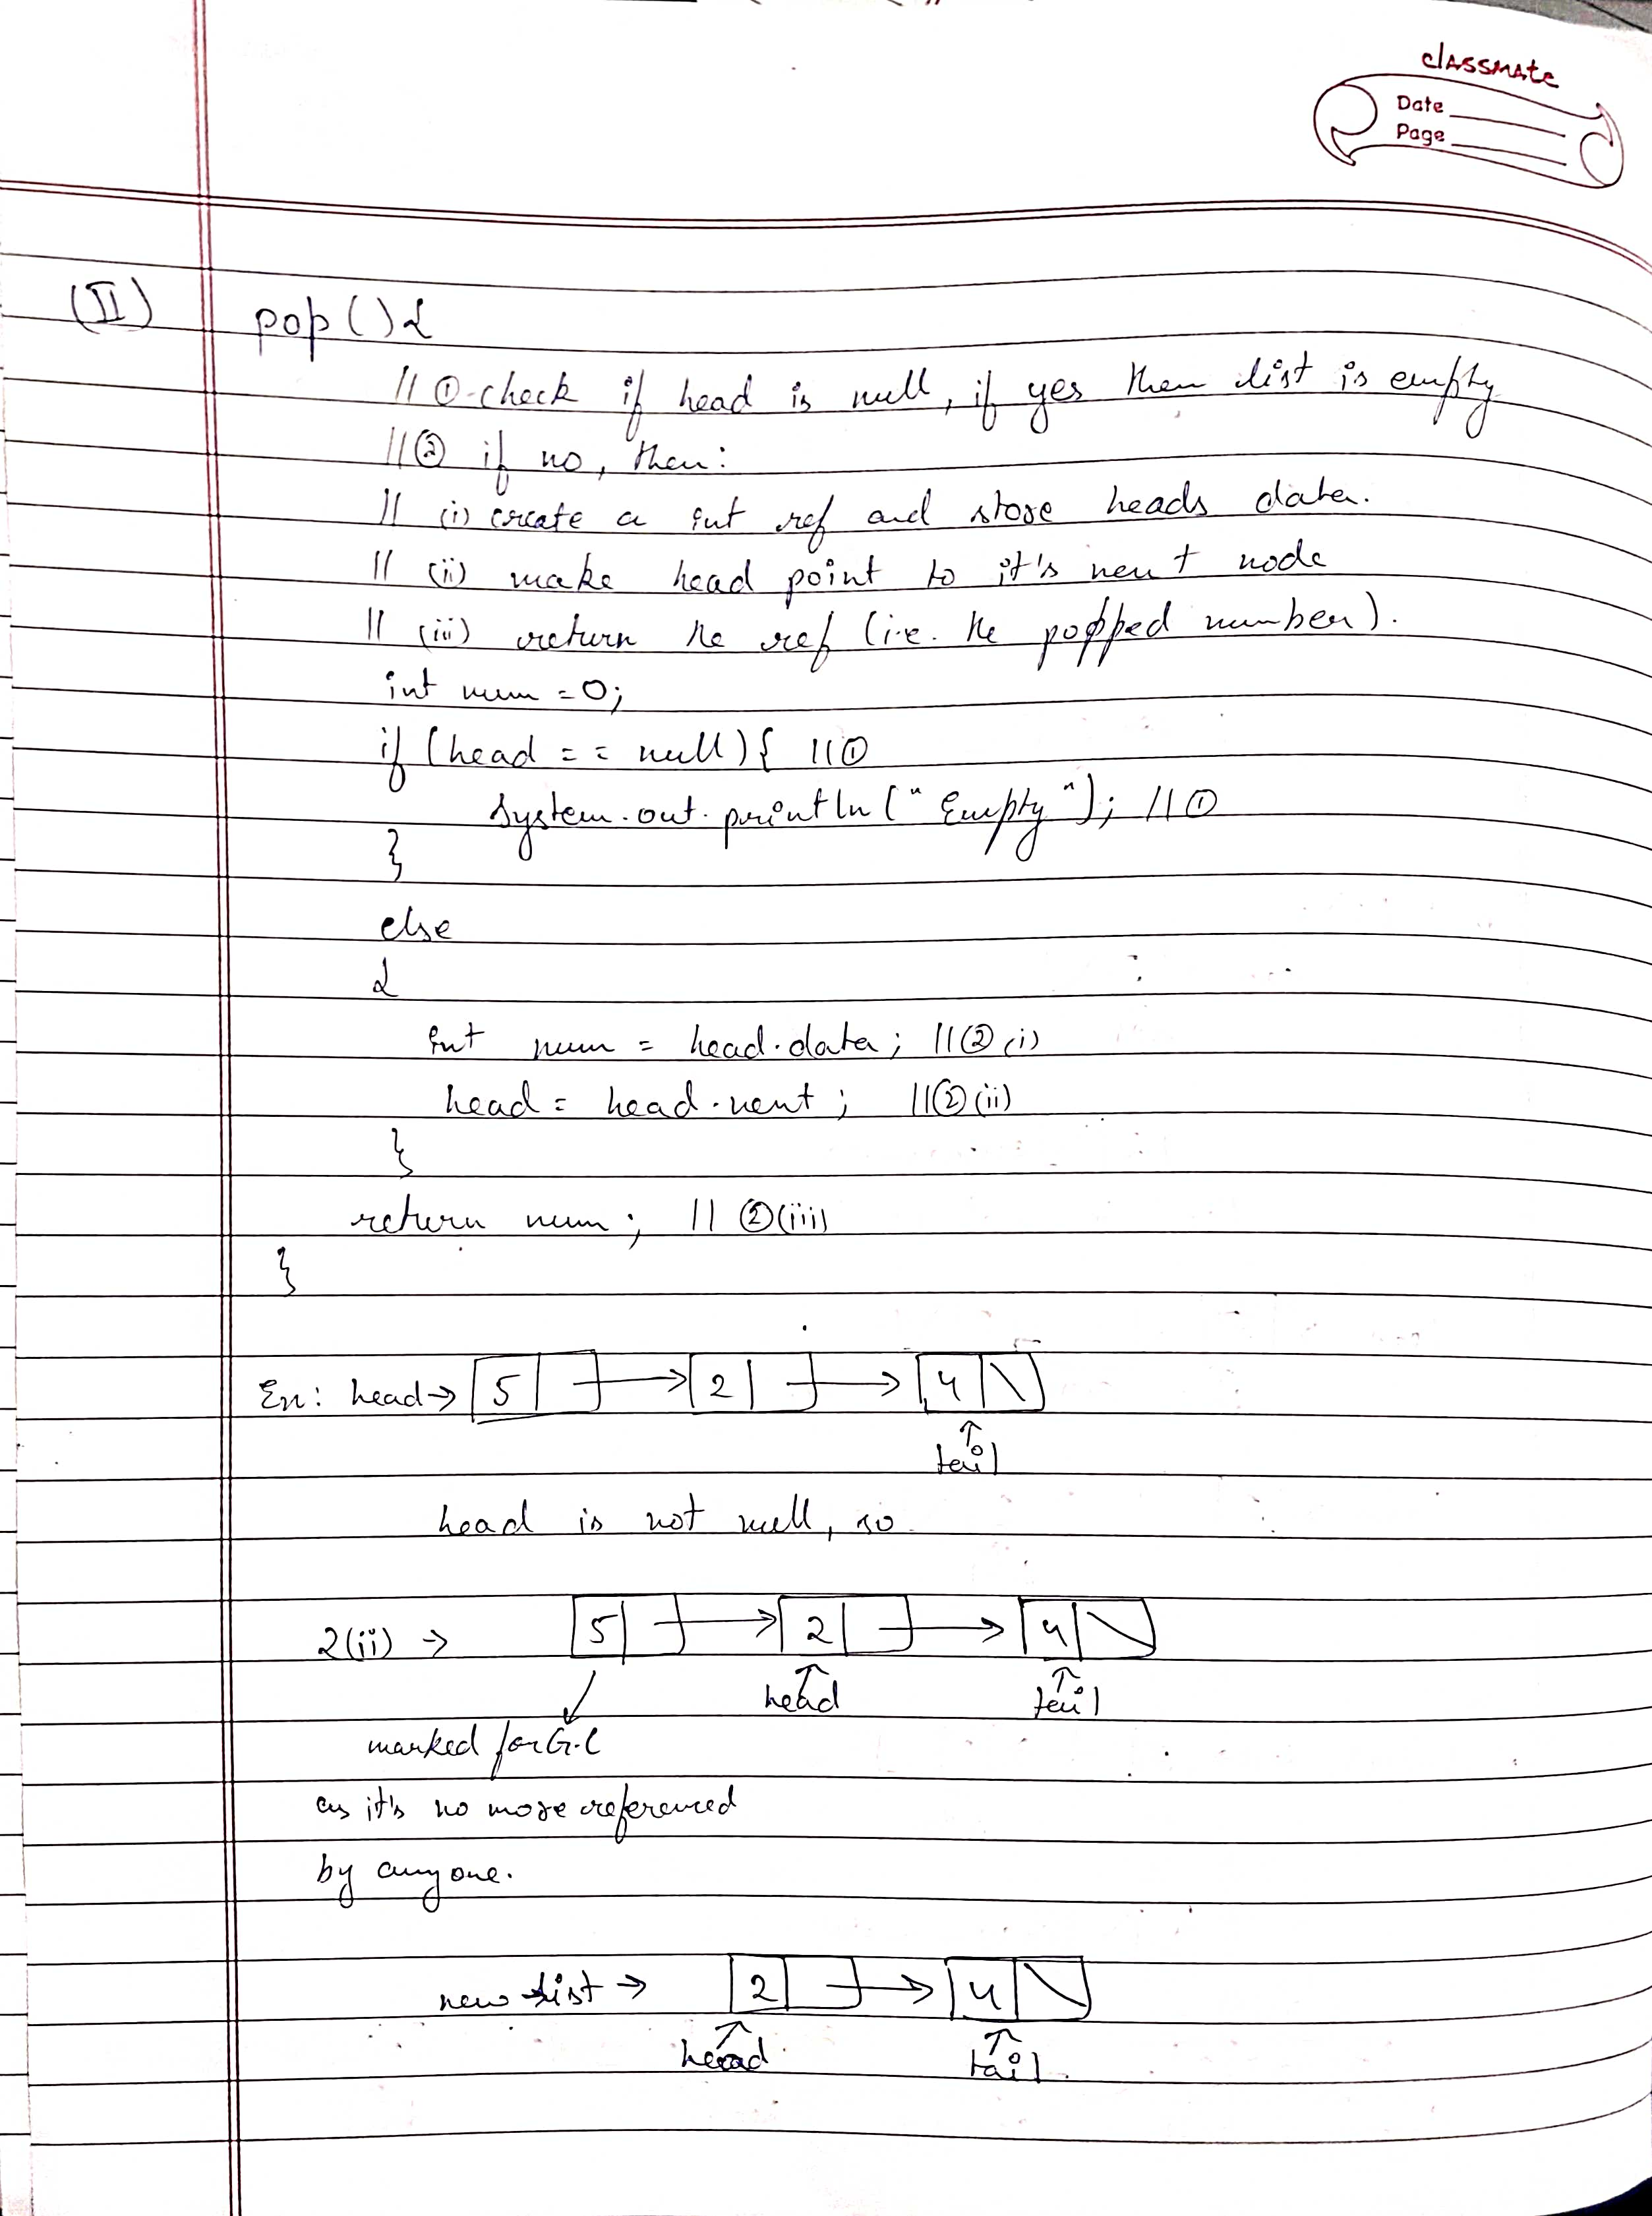 classmate
Date
Page
(II) pop(){
// ① check if head is null, if yes then list is empty
// ② if no, then:
// (i) create a int ref and store heads data.
// (ii) make head point to it's next node
// (iii) return the ref (i.e. the popped number).
int num = 0;
if (head == null){ // ①
System.out.println("Empty"); // ①
}
else
{
int num = head.data; // ② (i)
head = head.next; // ② (ii)
}
return num; // ② (iii)
}
Ex: head → 5 → 2 → 4
tail
head is not null, so
2(ii) → 5 → 2 → 4
head tail
marked for G.C
as it's no more referenced
by anyone.
new list → 2 → 4
head tail